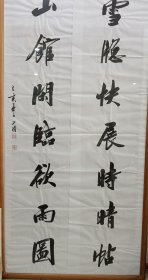 雪牕快展時晴帖
山館閑臨欲雨圖